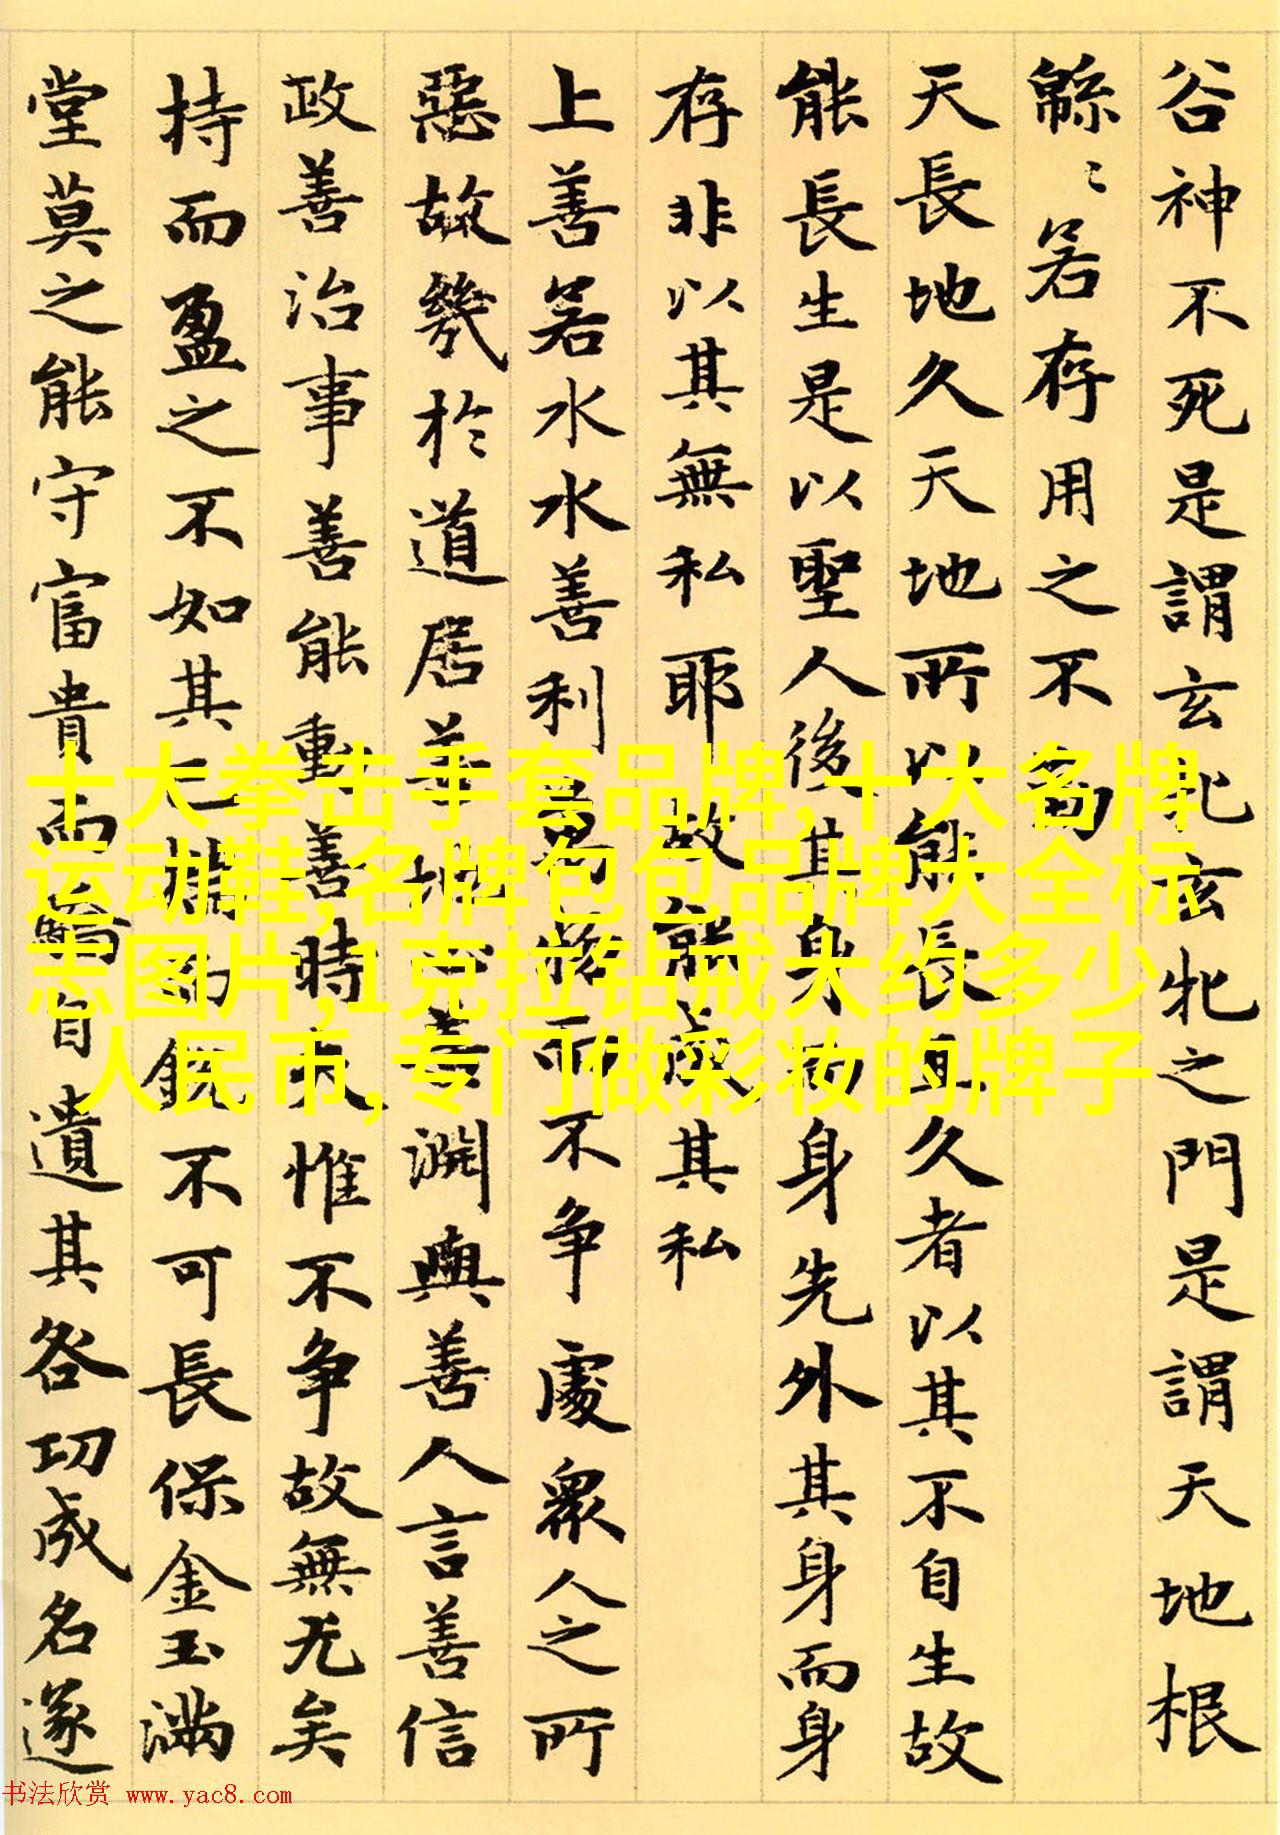 谷神不死是謂玄牝玄牝之門是謂天地根
緜〻若存用之不
天長地久天地所以能長且久者以其不自生故
能長生是以聖人後其身而身先外其身而身
存非以其無私耶故能成其私
上善若水水善利萬物而不争處衆人之所
惡故幾於道居善地心善淵與善人言善信
政善治事善能動善時夫惟不争故無尤矣
持而盈之不如其已揣而銳不可長保金玉滿
堂莫之能守富貴而驕自遺其咎功成名遂
十大拳击手套品牌,十大名牌
运动鞋,名牌包包品牌大全标
志图片,1克拉钻戒大约多少
人民币,专门做彩妆的牌子
书法欣赏 www.yac8.com